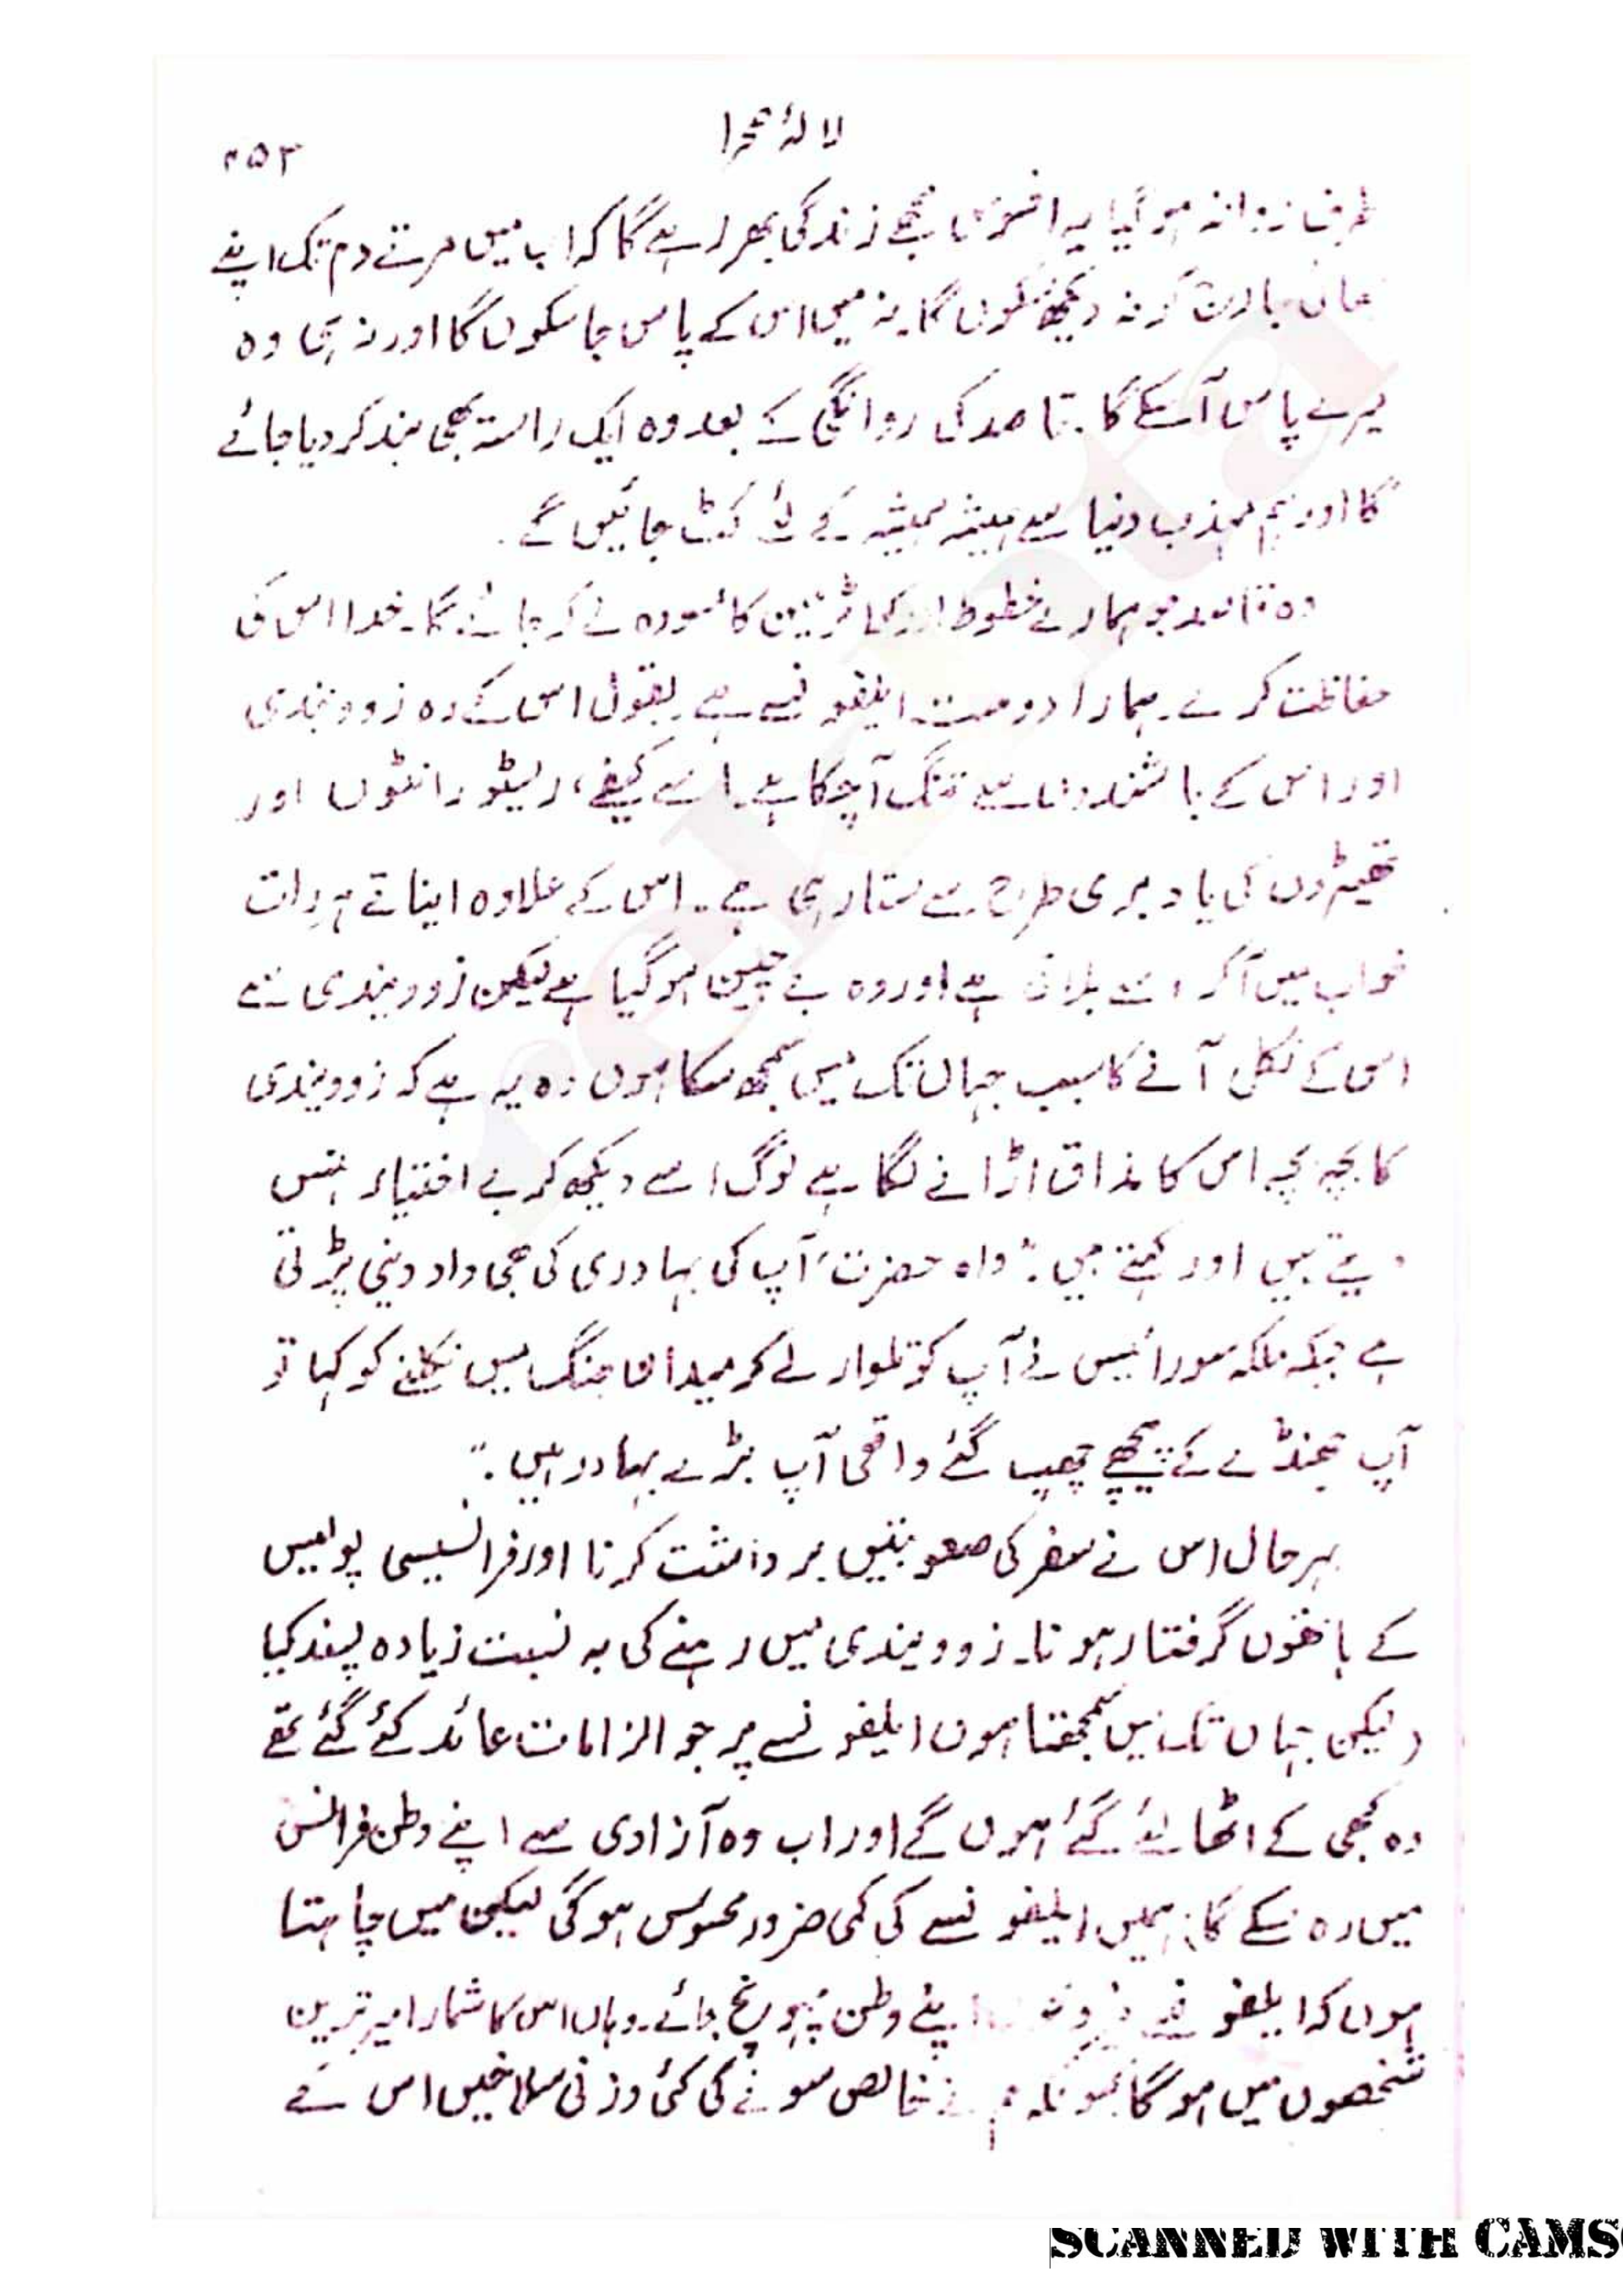 لالۂ صحرا
۲۵۳
طرف روانہ ہو گیا یہ افسوس مجھے زندگی بھر رہے گا کہ اب میں مرتے دم تک اپنے
کو نہ دیکھ سکوں گا۔ نہ میں اس کے پاس جا سکوں گا اور نہ ہی وہ
میرے پاس آسکے گا۔ قاصد کی روانگی کے بعد وہ ایک راستہ بھی بند کر دیا جائے
گا اور ہم مہذب دنیا سے ہمیشہ ہمیشہ کے لئے کٹ جائیں گے۔
وہ قاصد جو ہمارے خطوط اور کا مسودہ لے کر جائے گا۔ خدا اس کی
حفاظت کرے۔ ہمارا دوست ایلفونسے ہے۔ بقول اس کے وہ زوویندی
اور اس کے باشندوں سے تنگ آچکا ہے۔ اسے کیفے، ریسٹورانٹوں اور
تھیٹروں کی یاد بری طرح سے ستا رہی ہے۔ اس کے علاوہ اینا تے ہر رات
خواب میں آکر اسے بلاتی ہے اور وہ بے چین ہو گیا ہے لیکن زوویندی سے
اس کے نکل آنے کا سبب جہاں تک میں سمجھ سکا ہوں وہ یہ ہے کہ زوویندی
کا بچہ بچہ اس کا مذاق اڑانے لگا ہے لوگ اسے دیکھ کر بے اختیار ہنس
دیتے ہیں اور کہتے ہیں۔ "واہ حضرت، آپ کی بہادری کی بھی داد دینی پڑتی
ہے جبکہ ملکہ سورائیس نے آپ کو تلوار لے کر میدان جنگ میں نکلنے کو کہا تو
آپ جھنڈے کے پیچھے چھپ گئے واقعی آپ بڑے بہادر ہیں۔"
بہرحال اس نے سفر کی صعوبتیں برداشت کرنا اور فرانسیسی پولیس
کے ہاتھوں گرفتار ہونا۔ زوویندی میں رہنے کی بہ نسبت زیادہ پسند کیا
(لیکن جہاں تک میں سمجھتا ہوں ایلفونسے پر جو الزامات عائد کئے گئے تھے
وہ کبھی کے اٹھا لئے گئے ہوں گے اور اب وہ آزادی سے اپنے وطن فرانس
میں رہ سکے گا) ہمیں ایلفونسے کی کمی ضرور محسوس ہوگی لیکن میں چاہتا
ہوں کہ ایلفونسے اپنے وطن پہونچ جائے۔ وہاں اس کا شمار امیر ترین
شخصوں میں ہوگا کیونکہ ہم نے خالص سونے کی کئی وزنی سلاخیں اس کے
SCANNED WITH CAMS